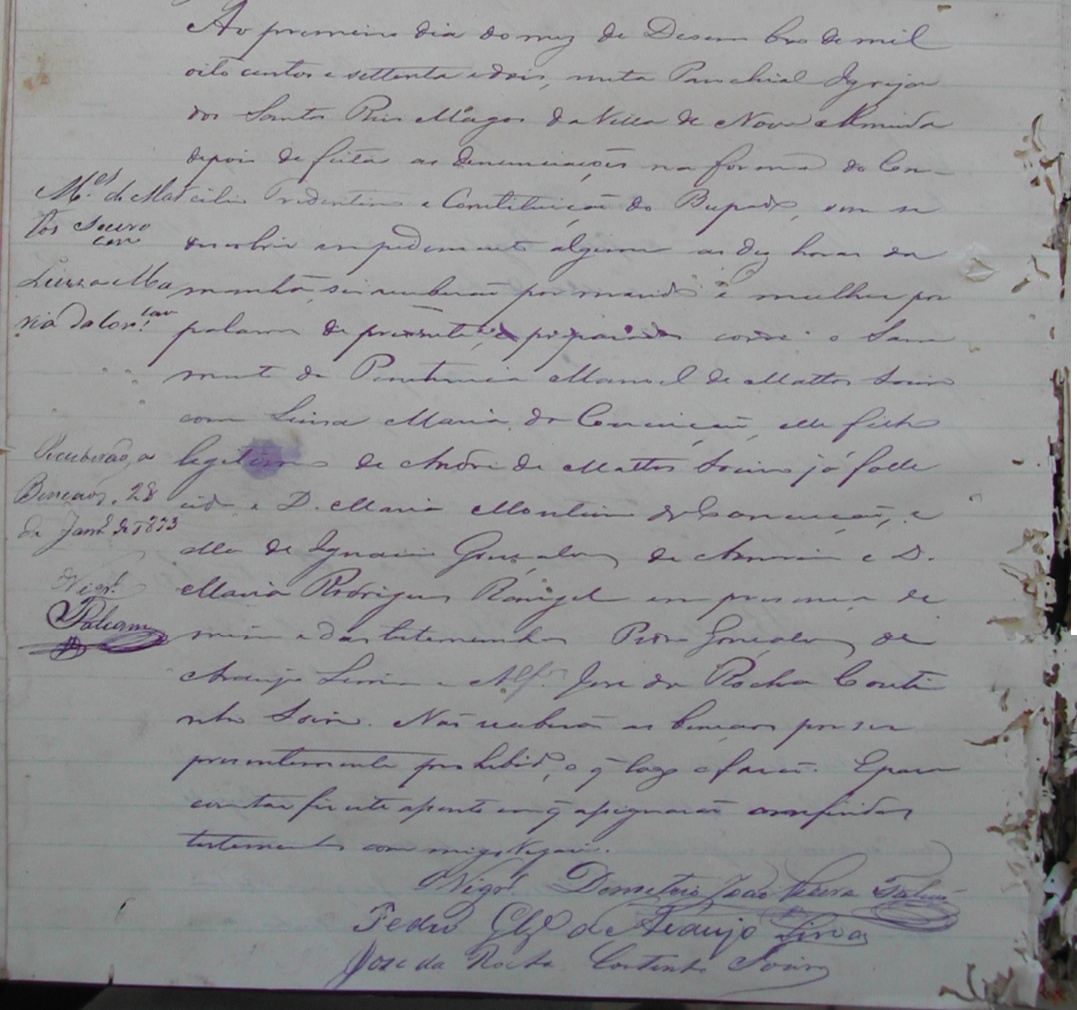 Ao primeiro dia do mez de Desembro de mil
oito centos e settenta e dois, nesta Parochial Igreja
dos Santos Reis Magos da Villa de Nova Almeida
depois de feita as denunciações na forma do Con-
cilio Tredentino e Constituição do Bispado, sem se
descobrir empedimento algum as dez horas da
manhã, se receberão por marido e mulher por
palavra de presente, e preparados com o Sacra
mento da Penitencia Manoel de Mattos Soeiro
com Luisa Maria da Conceição, elle filho
legitimo de André de Mattos Soeiro já falle
cido e D. Maria Monteiro da Conceição, e
ella de Ignacio Gonçalves de Amorim e D.
Maria Rodrigues Rangel em presença de
mim e das testemunhas Pedro Gonçalves de
Araujo Lirio e Alf. José da Rocha Couti
nho Soeiro. Não receberão as bençaos por ser
presentemente prohibido, o q̃ logo o farão. E para
constar fiz este assento em q̃ assignarão as referidas
testemunhas comigo Vigario.
Vigr.º Demetrio João
Pedro Glz' de Araujo Lirio
José da Rocha Coutinho Soeiro
M.el de Mat
tos Soeiro
com
Luiza Ma
ria da Con.çao
Receberão, as
Bençaos, 28
de Janr.º de 1873
Vigr.º